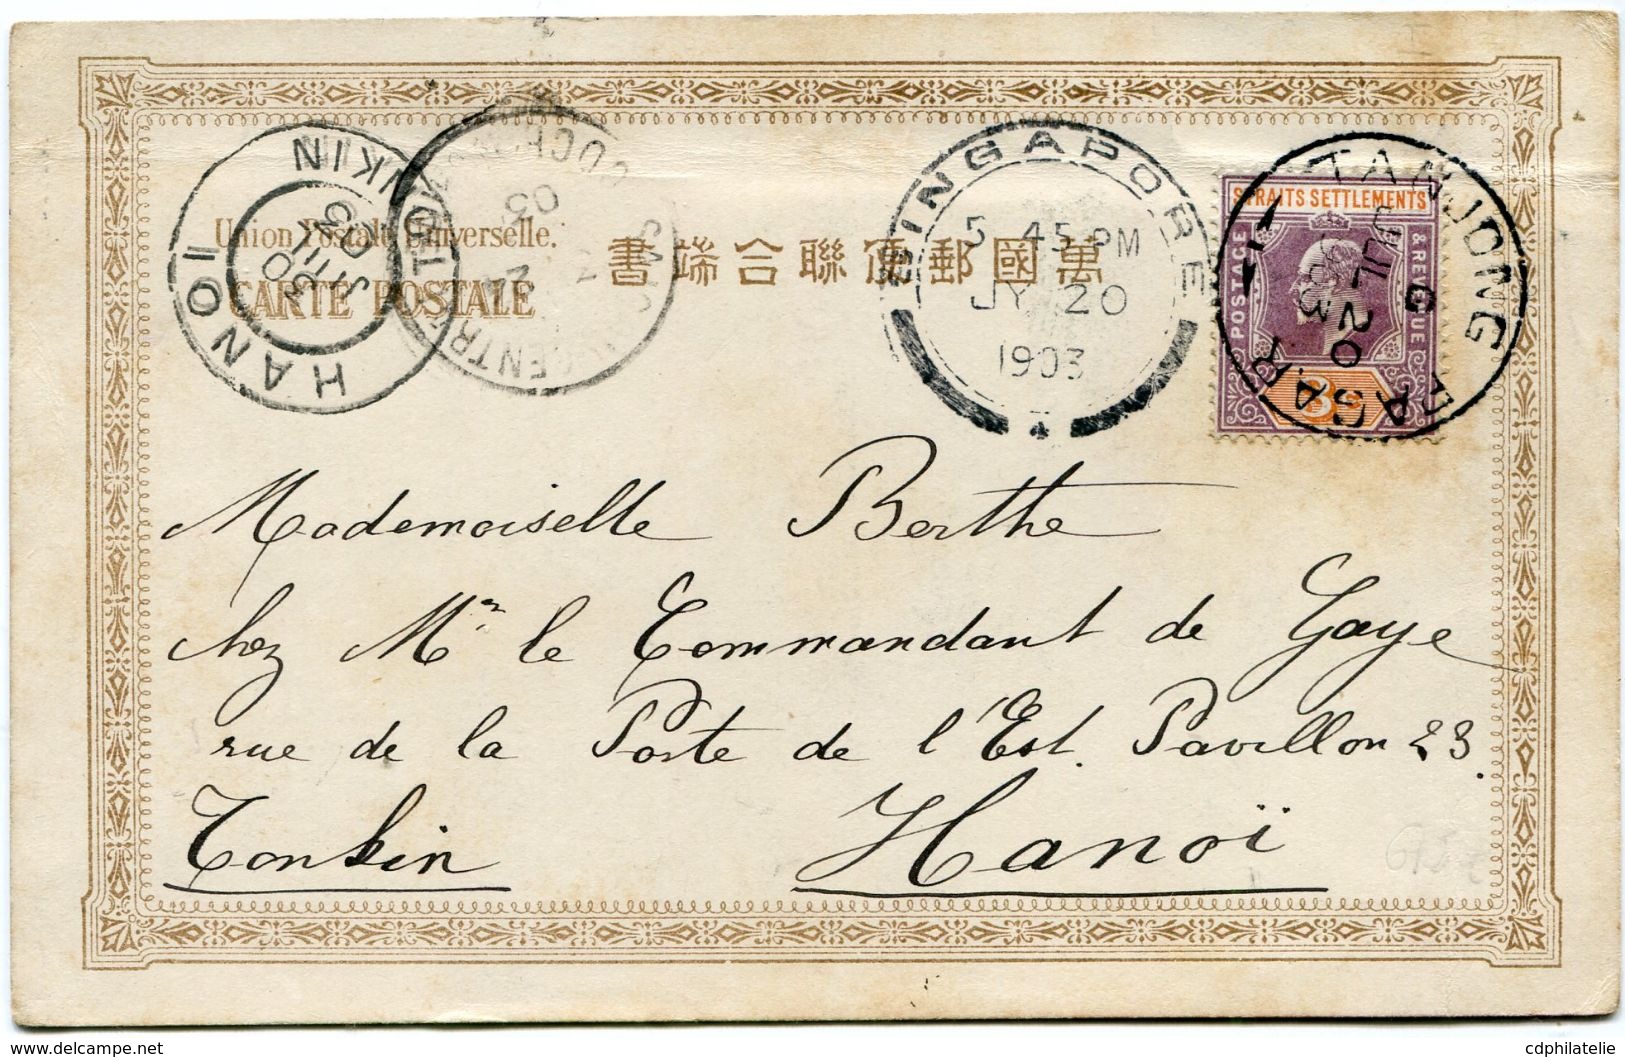 Union Postale Universelle.
CARTE POSTALE
書端合聯便郵國萬
HANOI
TONKIN
30
JUIL
03
COCH
CENTR
03
SINGAPORE
5 45 PM
JY 20
1903
STRAITS SETTLEMENTS
POSTAGE
& REVENUE
TANJONG PAGAR
G
JL 20
Mademoiselle Berthe
chez Mr le Commandant de Gaye
rue de la Porte de l'Est. Pavillon 23.
Tonkin Hanoï
delcampe.net
cdphilatelie